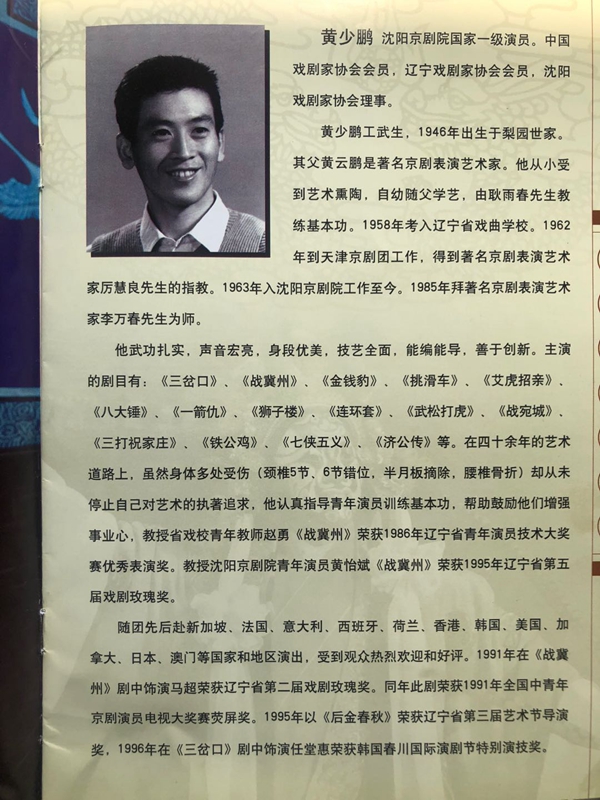 黄少鹏 沈阳京剧院国家一级演员。中国
戏剧家协会会员，辽宁戏剧家协会会员，沈阳
戏剧家协会理事。
黄少鹏工武生，1946年出生于梨园世家。
其父黄云鹏是著名京剧表演艺术家。他从小受
到艺术熏陶，自幼随父学艺，由耿雨春先生教
练基本功。1958年考入辽宁省戏曲学校。1962
年到天津京剧团工作，得到著名京剧表演艺术
家厉慧良先生的指教。1963年入沈阳京剧院工作至今。1985年拜著名京剧表演艺术
家李万春先生为师。
他武功扎实，声音宏亮，身段优美，技艺全面，能编能导，善于创新。主演
的剧目有：《三岔口》、《战冀州》、《金钱豹》、《挑滑车》、《艾虎招亲》、
《八大锤》、《一箭仇》、《狮子楼》、《连环套》、《武松打虎》、《战宛城》、
《三打祝家庄》、《铁公鸡》、《七侠五义》、《济公传》等。在四十余年的艺术
道路上，虽然身体多处受伤（颈椎5节、6节错位，半月板摘除，腰椎骨折）却从未
停止自己对艺术的执著追求，他认真指导青年演员训练基本功，帮助鼓励他们增强
事业心，教授省戏校青年教师赵勇《战冀州》荣获1986年辽宁省青年演员技术大奖
赛优秀表演奖。教授沈阳京剧院青年演员黄怡斌《战冀州》荣获1995年辽宁省第五
届戏剧玫瑰奖。
随团先后赴新加坡、法国、意大利、西班牙、荷兰、香港、韩国、美国、加
拿大、日本、澳门等国家和地区演出，受到观众热烈欢迎和好评。1991年在《战冀
州》剧中饰演马超荣获辽宁省第二届戏剧玫瑰奖。同年此剧荣获1991年全国中青年
京剧演员电视大奖赛荧屏奖。1995年以《后金春秋》荣获辽宁省第三届艺术节导演
奖，1996年在《三岔口》剧中饰演任堂惠荣获韩国春川国际演剧节特别演技奖。